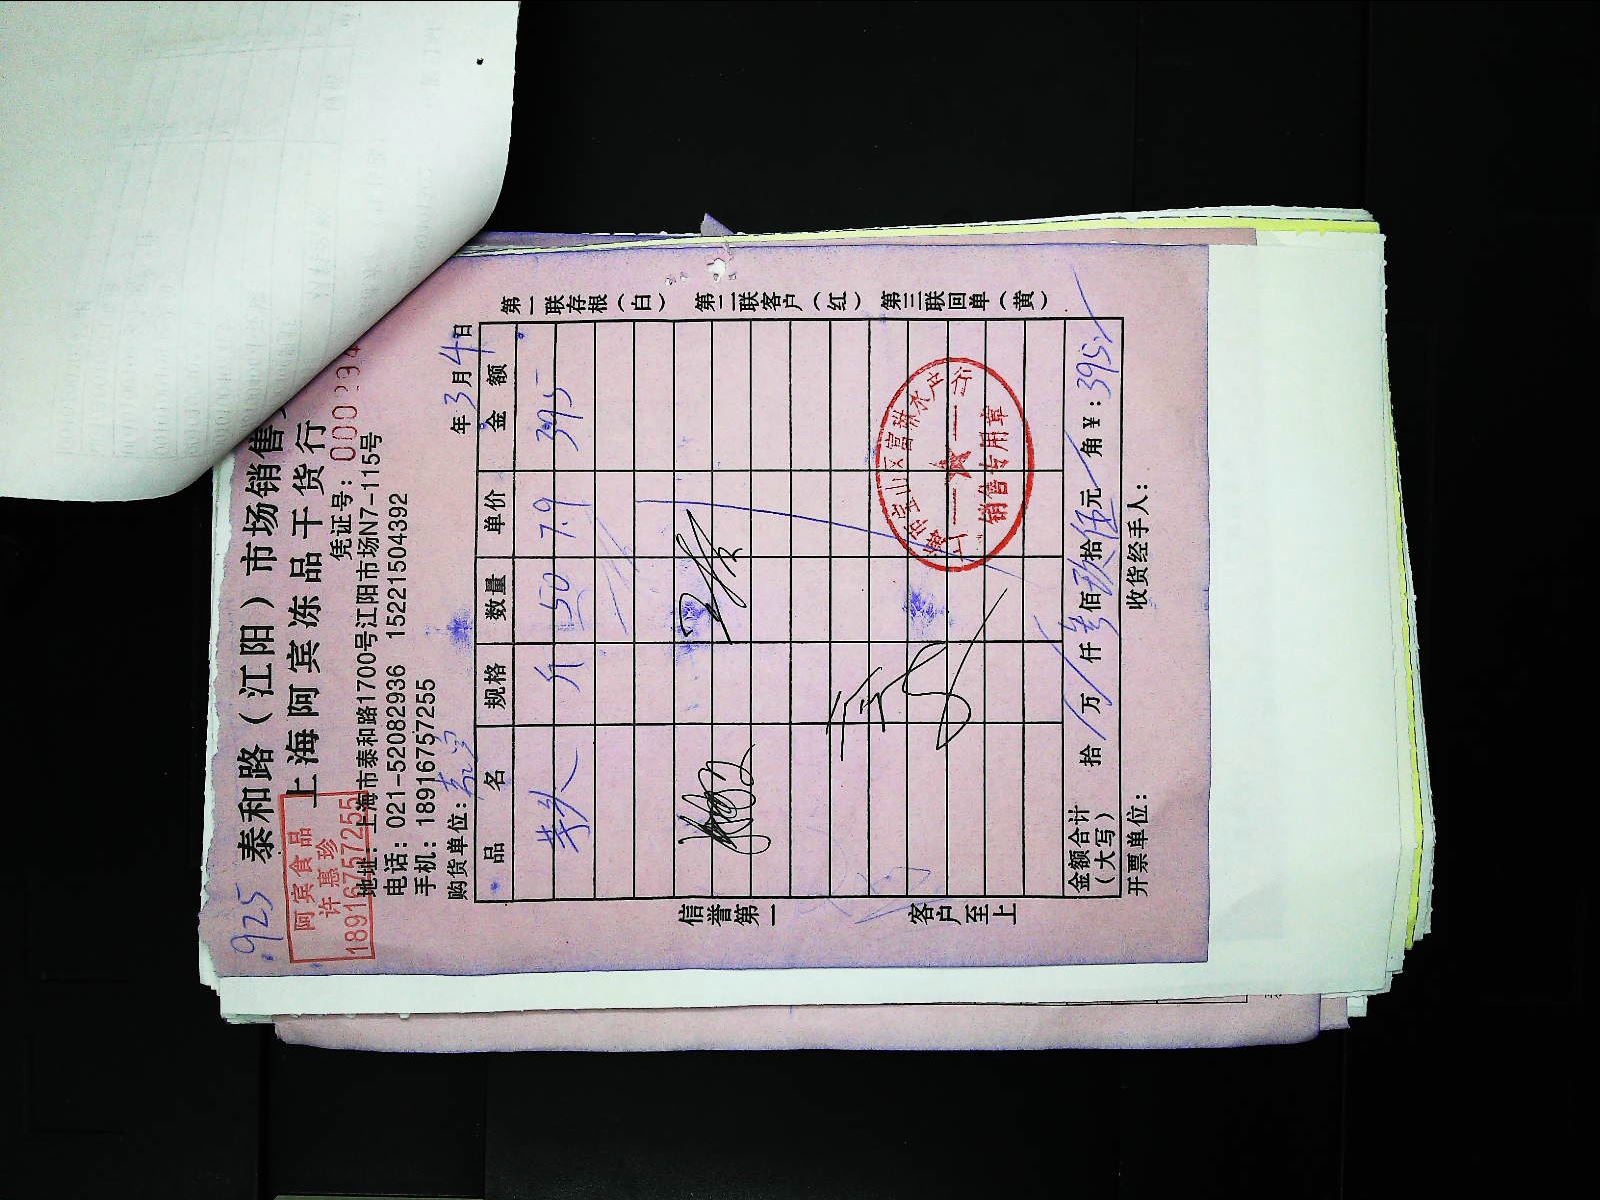 925
泰和路（江阳）市场销售
上海阿宾冻品干货行
阿宾食品
许惠珍
18916757255
凭证号：000294
地址：上海市泰和路1700号江阳市场N7-115号
电话：021-52082936 15221504392
手机：18916757255
购货单位： 年3月4日
品名 规格 数量 单价 金额
斤 50 7.9 395
第一联存根（白） 第二联客户（红） 第三联回单（黄）
信誉第一 客户至上
上海市宝山区富琳水产行
销售专用章
金额合计（大写） 拾 万 仟 叁佰玖拾伍元 角 ¥：395
开票单位： 收货经手人：